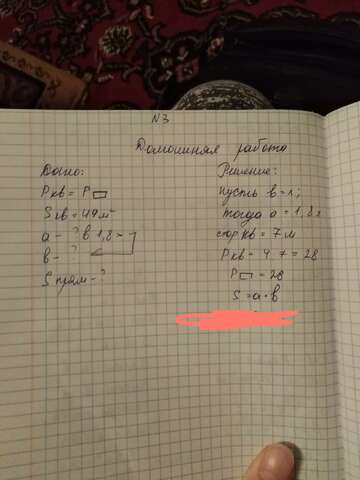 N3
Домашняя работа
Дано:
Pкв = P▭
Sкв = 49 м²
a - ? в 1,8 >
в - ?
S прям - ?
Решение:
пусть в = x;
тогда a = 1,8x
стор кв = 7 м
Pкв = 4 · 7 = 28
P▭ = 28
S = a · в